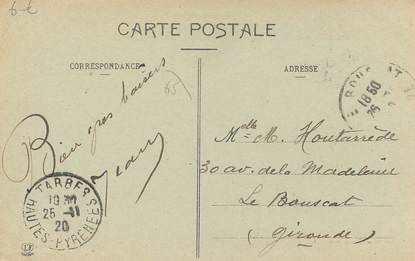 6 €
CARTE POSTALE
CORRESPONDANCE
ADRESSE
65
Bien gros baisers
TARBES
19 30
25 - 11
20
HAUTES-PYRENEES
18 50
Melle M. Houtarrède
30 av. de la Madeleine
Le Bouscat
(Gironde)